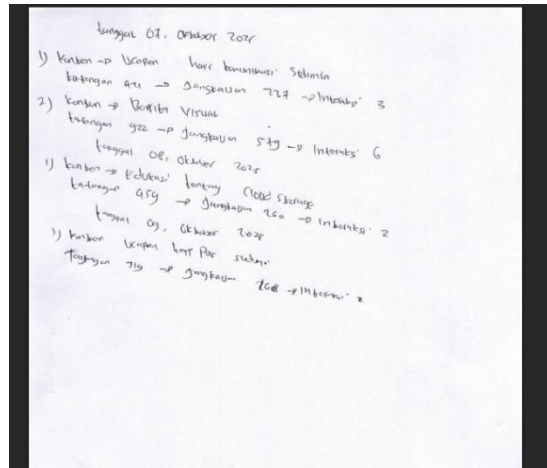 tanggal 07, Oktober 2025
1) Konten → Ucapan hari komunikasi Sedunia
tayangan 421 → Jangkauan 227 → Interaksi 3
2) Konten → Berita Visual
tayangan 922 → Jangkauan 579 → Interaksi 6
tanggal 08, Oktober 2025
1) Konten → Edukasi tentang Cloud Storage
tayangan 459 → Jangkauan 260 → Interaksi 2
tanggal 09, Oktober 2025
1) Konten Ucapan hari Pos sedunia
tayangan 719 → Jangkauan 268 → Interaksi 2